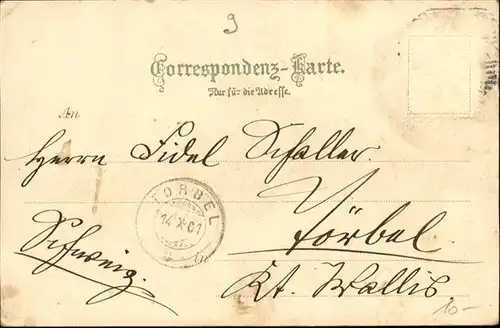 9
Correspondenz-Karte.
Nur für die Adresse.
An
Herrn Fidel Schaller
TÖRBEL
14 X 01
Törbel
Schweiz.
Kt. Wallis
10-